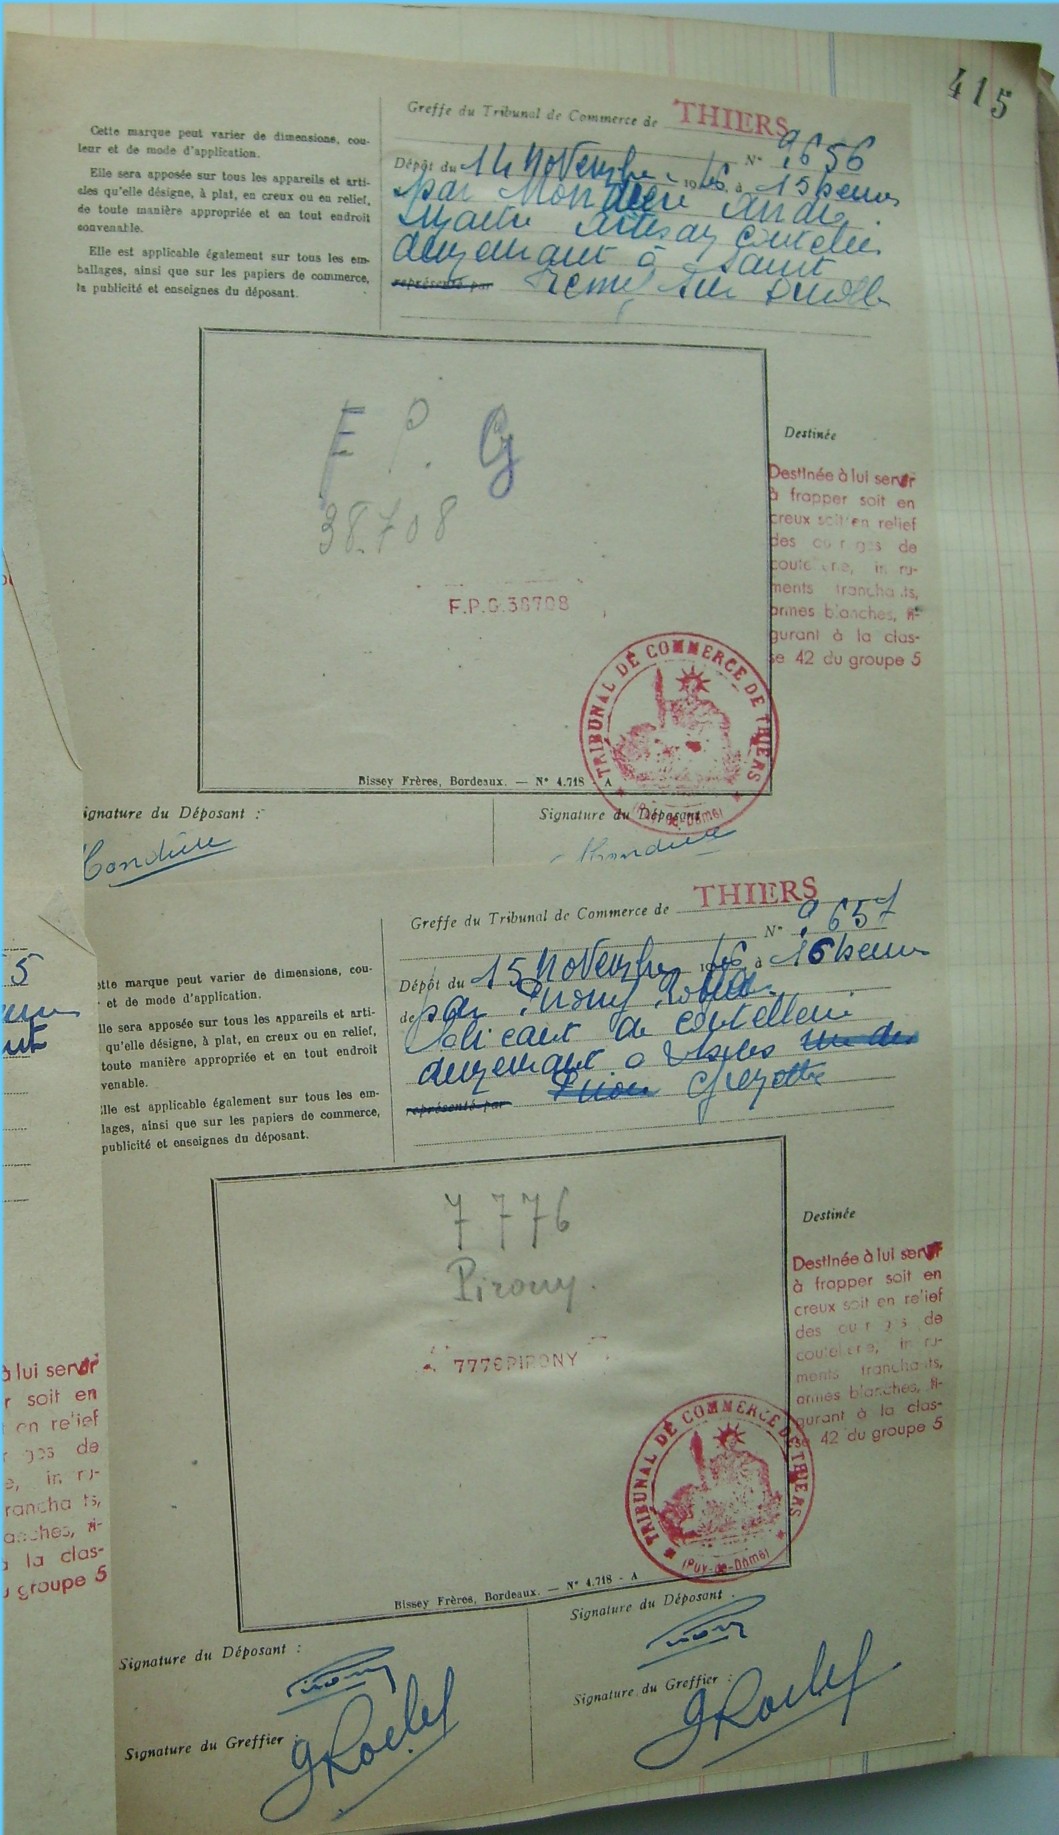 415
Greffe du Tribunal de Commerce de THIERS
N° 9656
Dépôt du 14 Novembre 1946 à 15 heures
par Mondière André
Maitre Artisan Coutelier
demeurant à Saint
représenté par Remy sur Durolle
Cette marque peut varier de dimensions, cou-
leur et de mode d'application.
Elle sera apposée sur tous les appareils et arti-
cles qu'elle désigne, à plat, en creux ou en relief,
de toute manière appropriée et en tout endroit
convenable.
Elle est applicable également sur tous les em-
ballages, ainsi que sur les papiers de commerce,
la publicité et enseignes du déposant.
F. P. G
38.708
F.P.G.38708
Destinée
Destinée à lui servir
à frapper soit en
creux soit en relief
des ouvrages de
coutellerie, instru-
ments tranchants,
armes blanches, fi-
gurant à la clas-
se 42 du groupe 5
TRIBUNAL DE COMMERCE DE THIERS
(Puy-de-Dôme)
Bissey Frères, Bordeaux. — N° 4.718 - A
ignature du Déposant :
Signature du Déposant
Mondière
Greffe du Tribunal de Commerce de THIERS
N° 9657
Dépôt du 15 Novembre 1946 à 16 heures
de par Pirony
fabricant de coutellerie
demeurant à
représenté par
ette marque peut varier de dimensions, cou-
et de mode d'application.
lle sera apposée sur tous les appareils et arti-
qu'elle désigne, à plat, en creux ou en relief,
toute manière appropriée et en tout endroit
venable.
lle est applicable également sur tous les em-
lages, ainsi que sur les papiers de commerce,
publicité et enseignes du déposant.
7776
Pirony.
7776PIRONY
Destinée
Destinée à lui servir
à frapper soit en
creux soit en relief
des ouvrages de
coutellerie, instru-
ments tranchants,
armes blanches, fi-
gurant à la clas-
se 42 du groupe 5
TRIBUNAL DE COMMERCE DE THIERS
(Puy-de-Dôme)
Bissey Frères, Bordeaux. — N° 4.718 - A
Signature du Déposant :
Signature du Déposant :
Pirony
Signature du Greffier :
Signature du Greffier :
5
à lui servir
r soit en
en relief
ges de
e, in ru-
rancha ts,
anches, fi-
à la clas-
u groupe 5